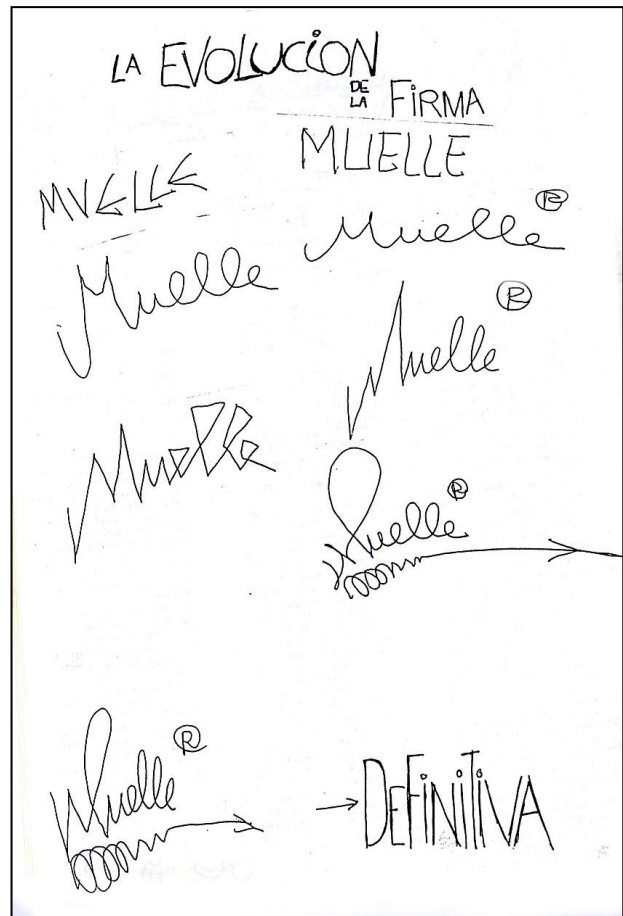 LA EVOLUCiON
DE LA FiRMA
MUELLE
MVELLE
Muelle ®
Muelle
Muelle ®
Muelle
Muelle ®
Muelle ®
→ DEFiNiTiVA